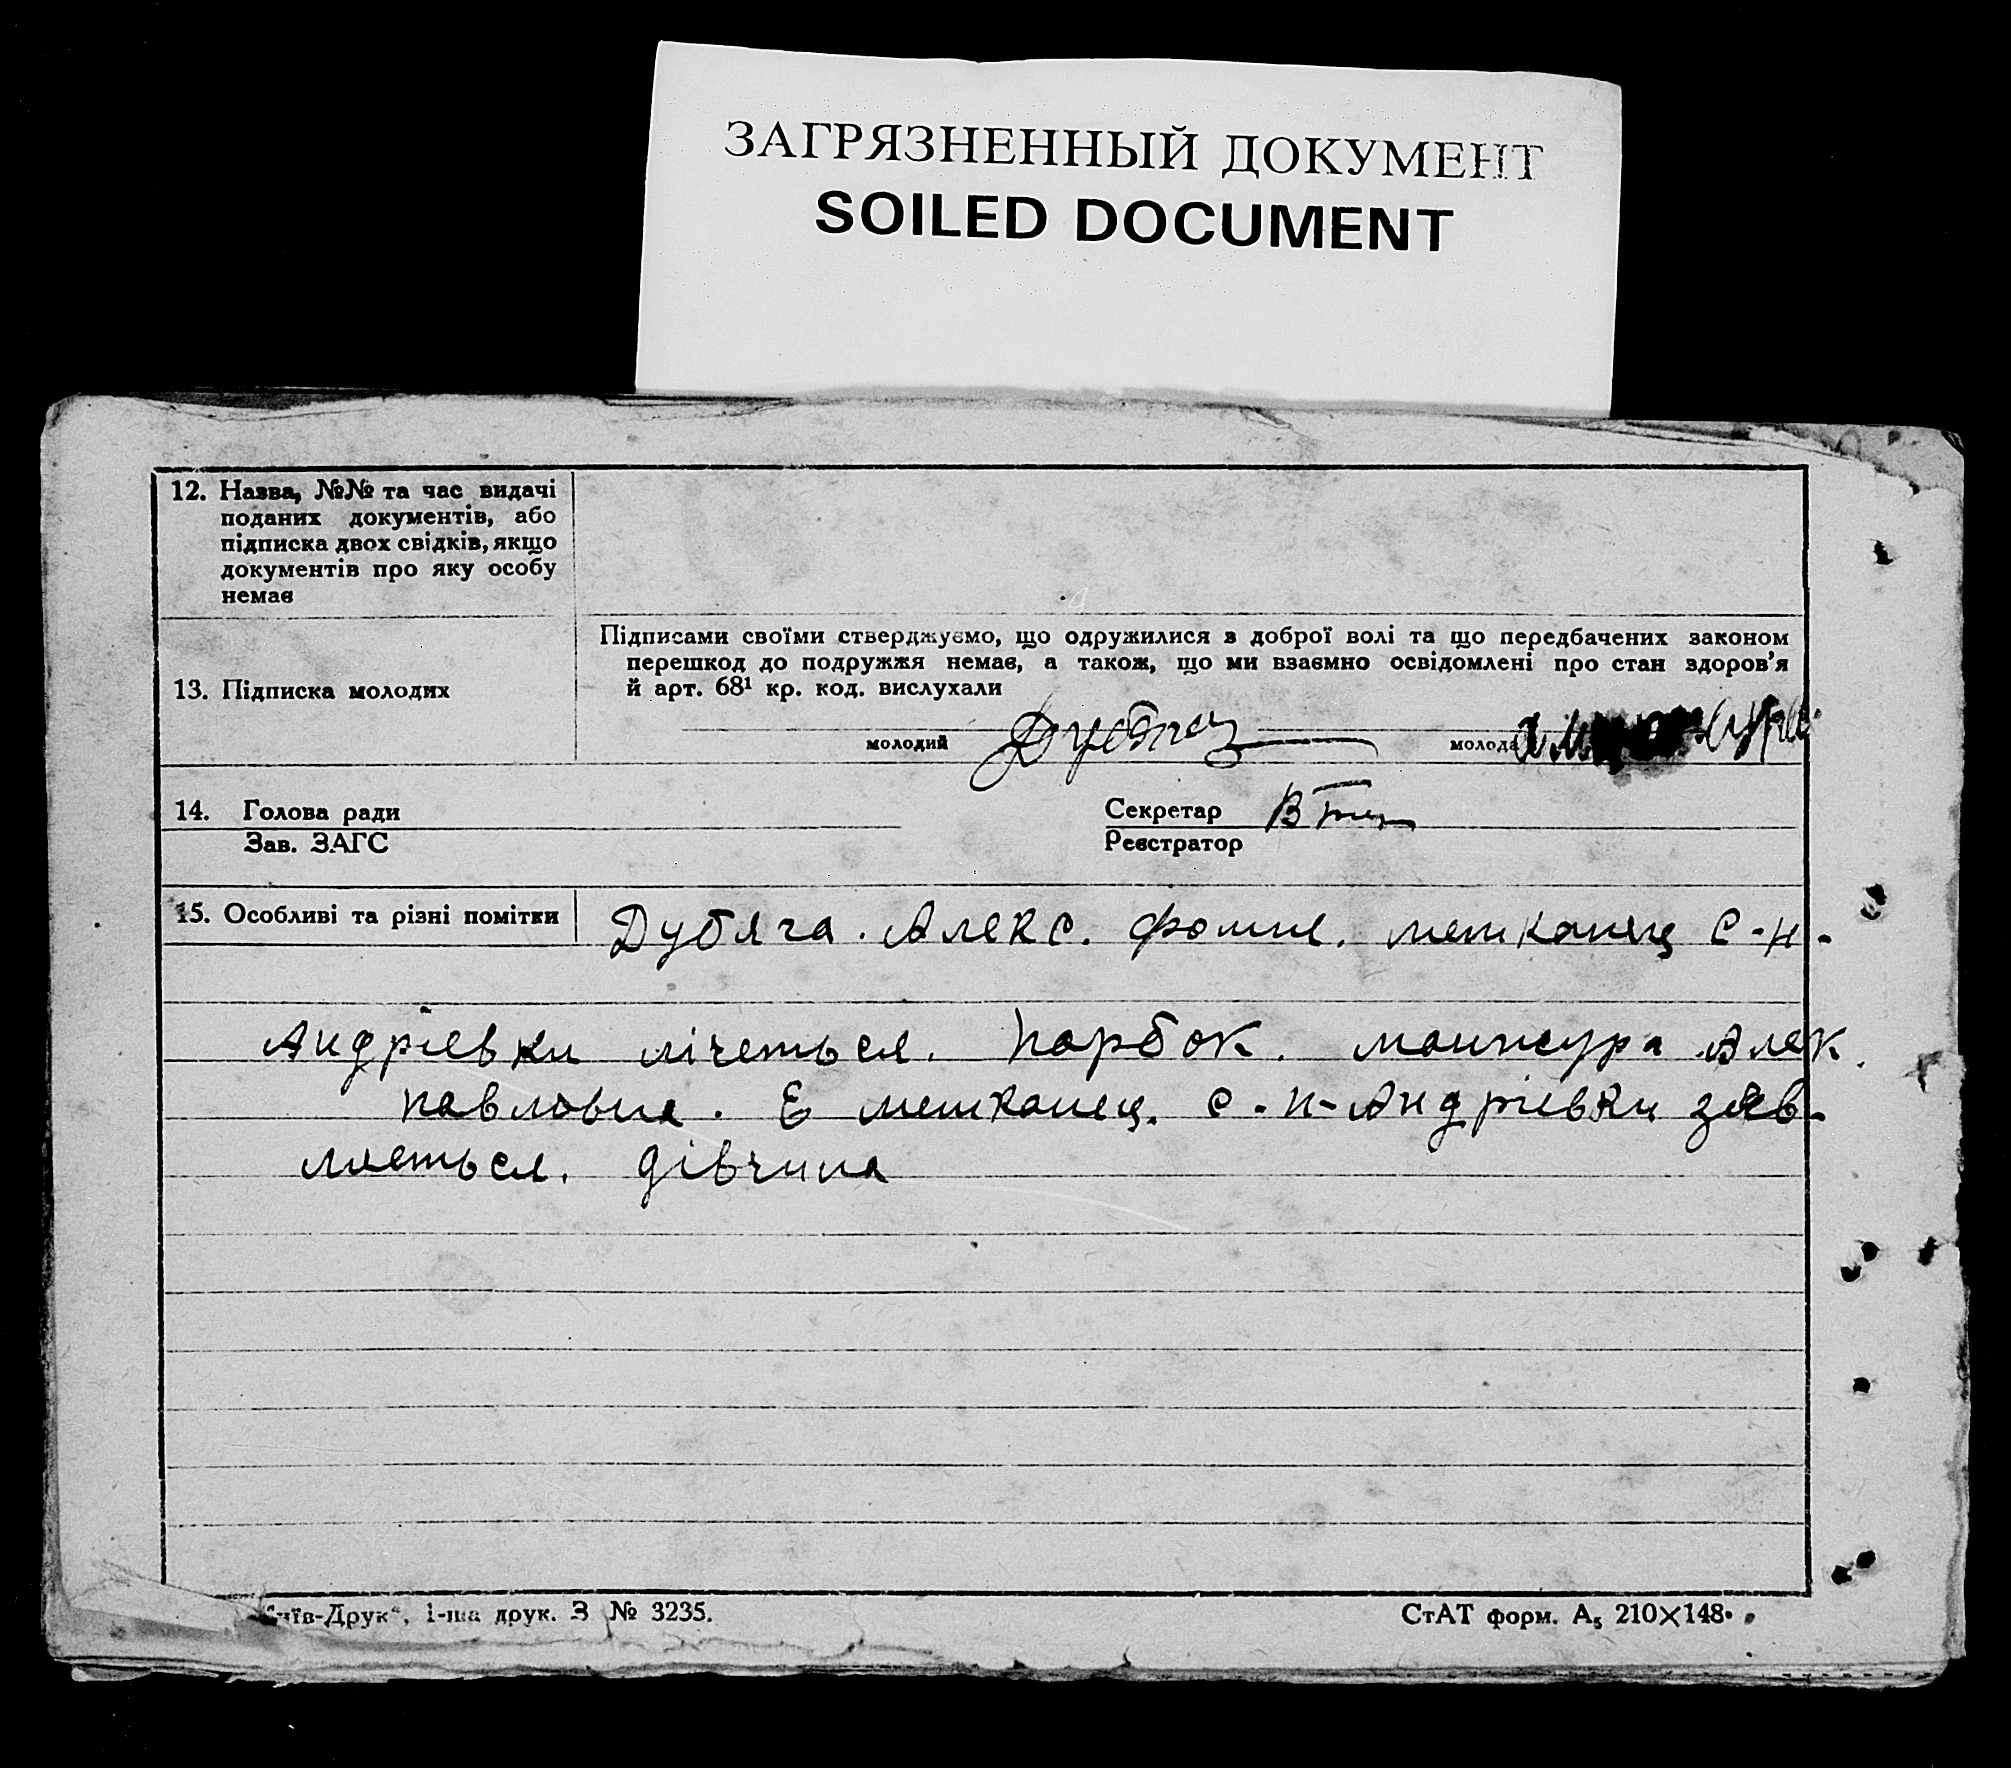 ЗАГРЯЗНЕННЫЙ ДОКУМЕНТ
SOILED DOCUMENT
12. Назва, №№ та час видачі
поданих документів, або
підписка двох свідків, якщо
документів про яку особу
немає
Підписами своїми стверджуємо, що одружилися з доброї волі та що передбачених законом
перешкод до подружжя немає, а також, що ми взаємно освідомлені про стан здоров'я
13. Підписка молодих
й арт. 68¹ кр. код. вислухали
молодий
молода
14. Голова ради
Секретар
Зав. ЗАГС
Реєстратор
15. Особливі та різні помітки
Дубяга. Алекс. Фомич. мешканец с-н-
Андрієвки лічеться. парбок. манжура Алек.
павловна. Е мешканец. с-н-Андрієвки зявляеться. дівчина
Київ-Друк", 1-ша друк. З № 3235.
СтАТ форм. А₅ 210×148